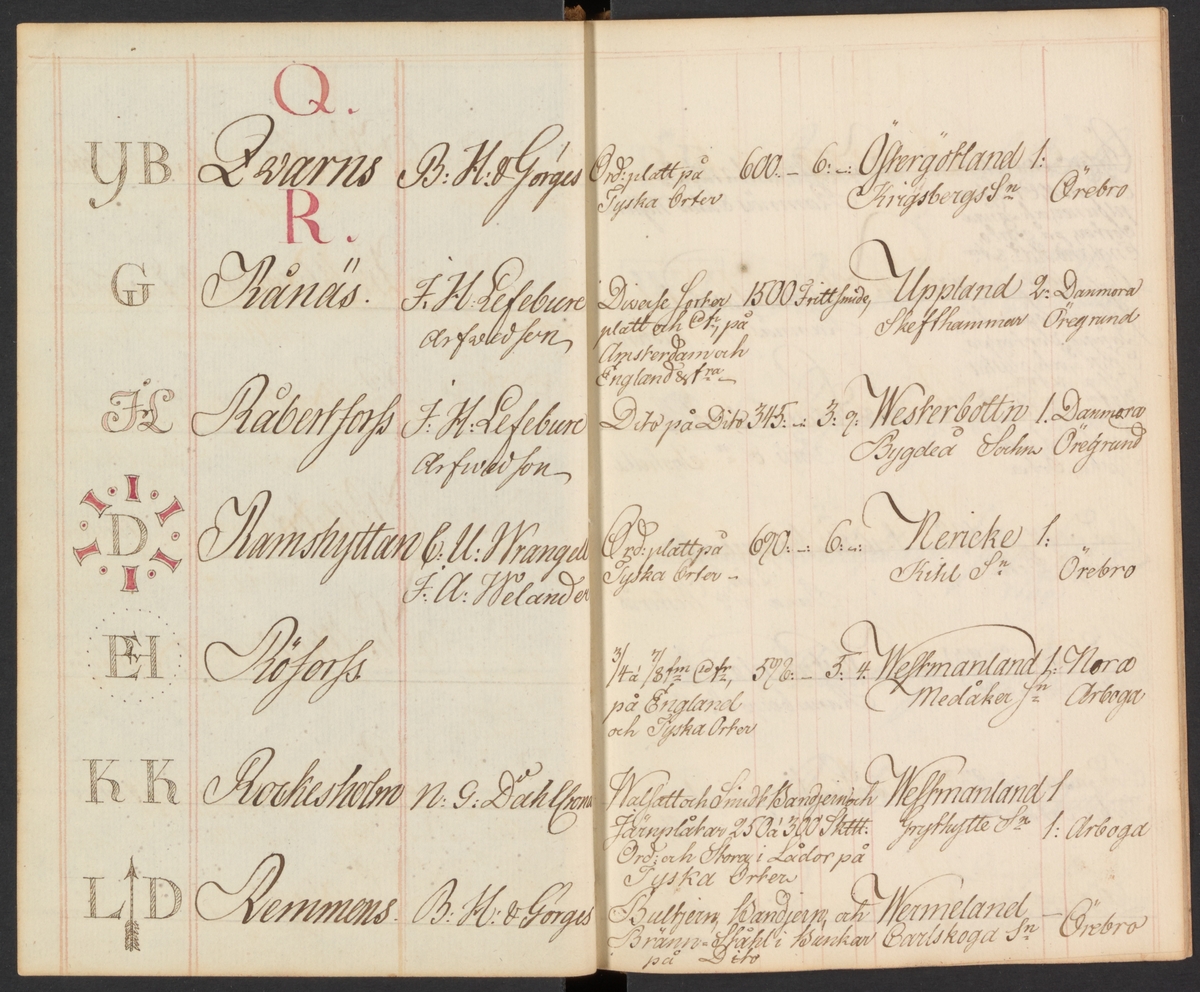 Q.
YB Qwarns B: H: & Görges Ord: platt på 600. – 6: –: Östergötland 1:
Tyska Orter Krigsbergs Sn Örebro
R.
G Rånäs. F. H. Lefebure Diverse Sorter 1500 Frittsmide, Uppland 2: Danmora
Arfwedson platt och på Skefthammar Öregrund
Amsterdam och
England
HL Råbertsforss F: H: Lefebure Dito på Dito 345: –: 3: 9: Westerbottn 1. Danmora
Arfwedson Bygdeå Sochn Öregrund
D Ramshyttan C: U: Wrangell Ord: platt på 670: –: 6: –: Nericke 1:
F: A: Welander Tyska Orter – Kihl Sn Örebro
EH Röforss 3/4 á 7/8 tm 592: – 5: 4: Westmanland 1: Nora
på England Medåker Sn Arboga
och Tyska Orter
KK Rockesholm N: G: Dahlbom Walsatt och Smidt Bandjern och Westmanland 1
Järnplåtar 250 á 300 Sk℔: Grythytte Sn 1: Arboga
Ord: och Stora i Lådor på
Tyska Orter
LD Remmens. B: H: & Görges Bultjern, Bandjern, och Wermeland – Örebro
Bränn-Ståhl i Bunkar Carlskoga Sn
på Dito